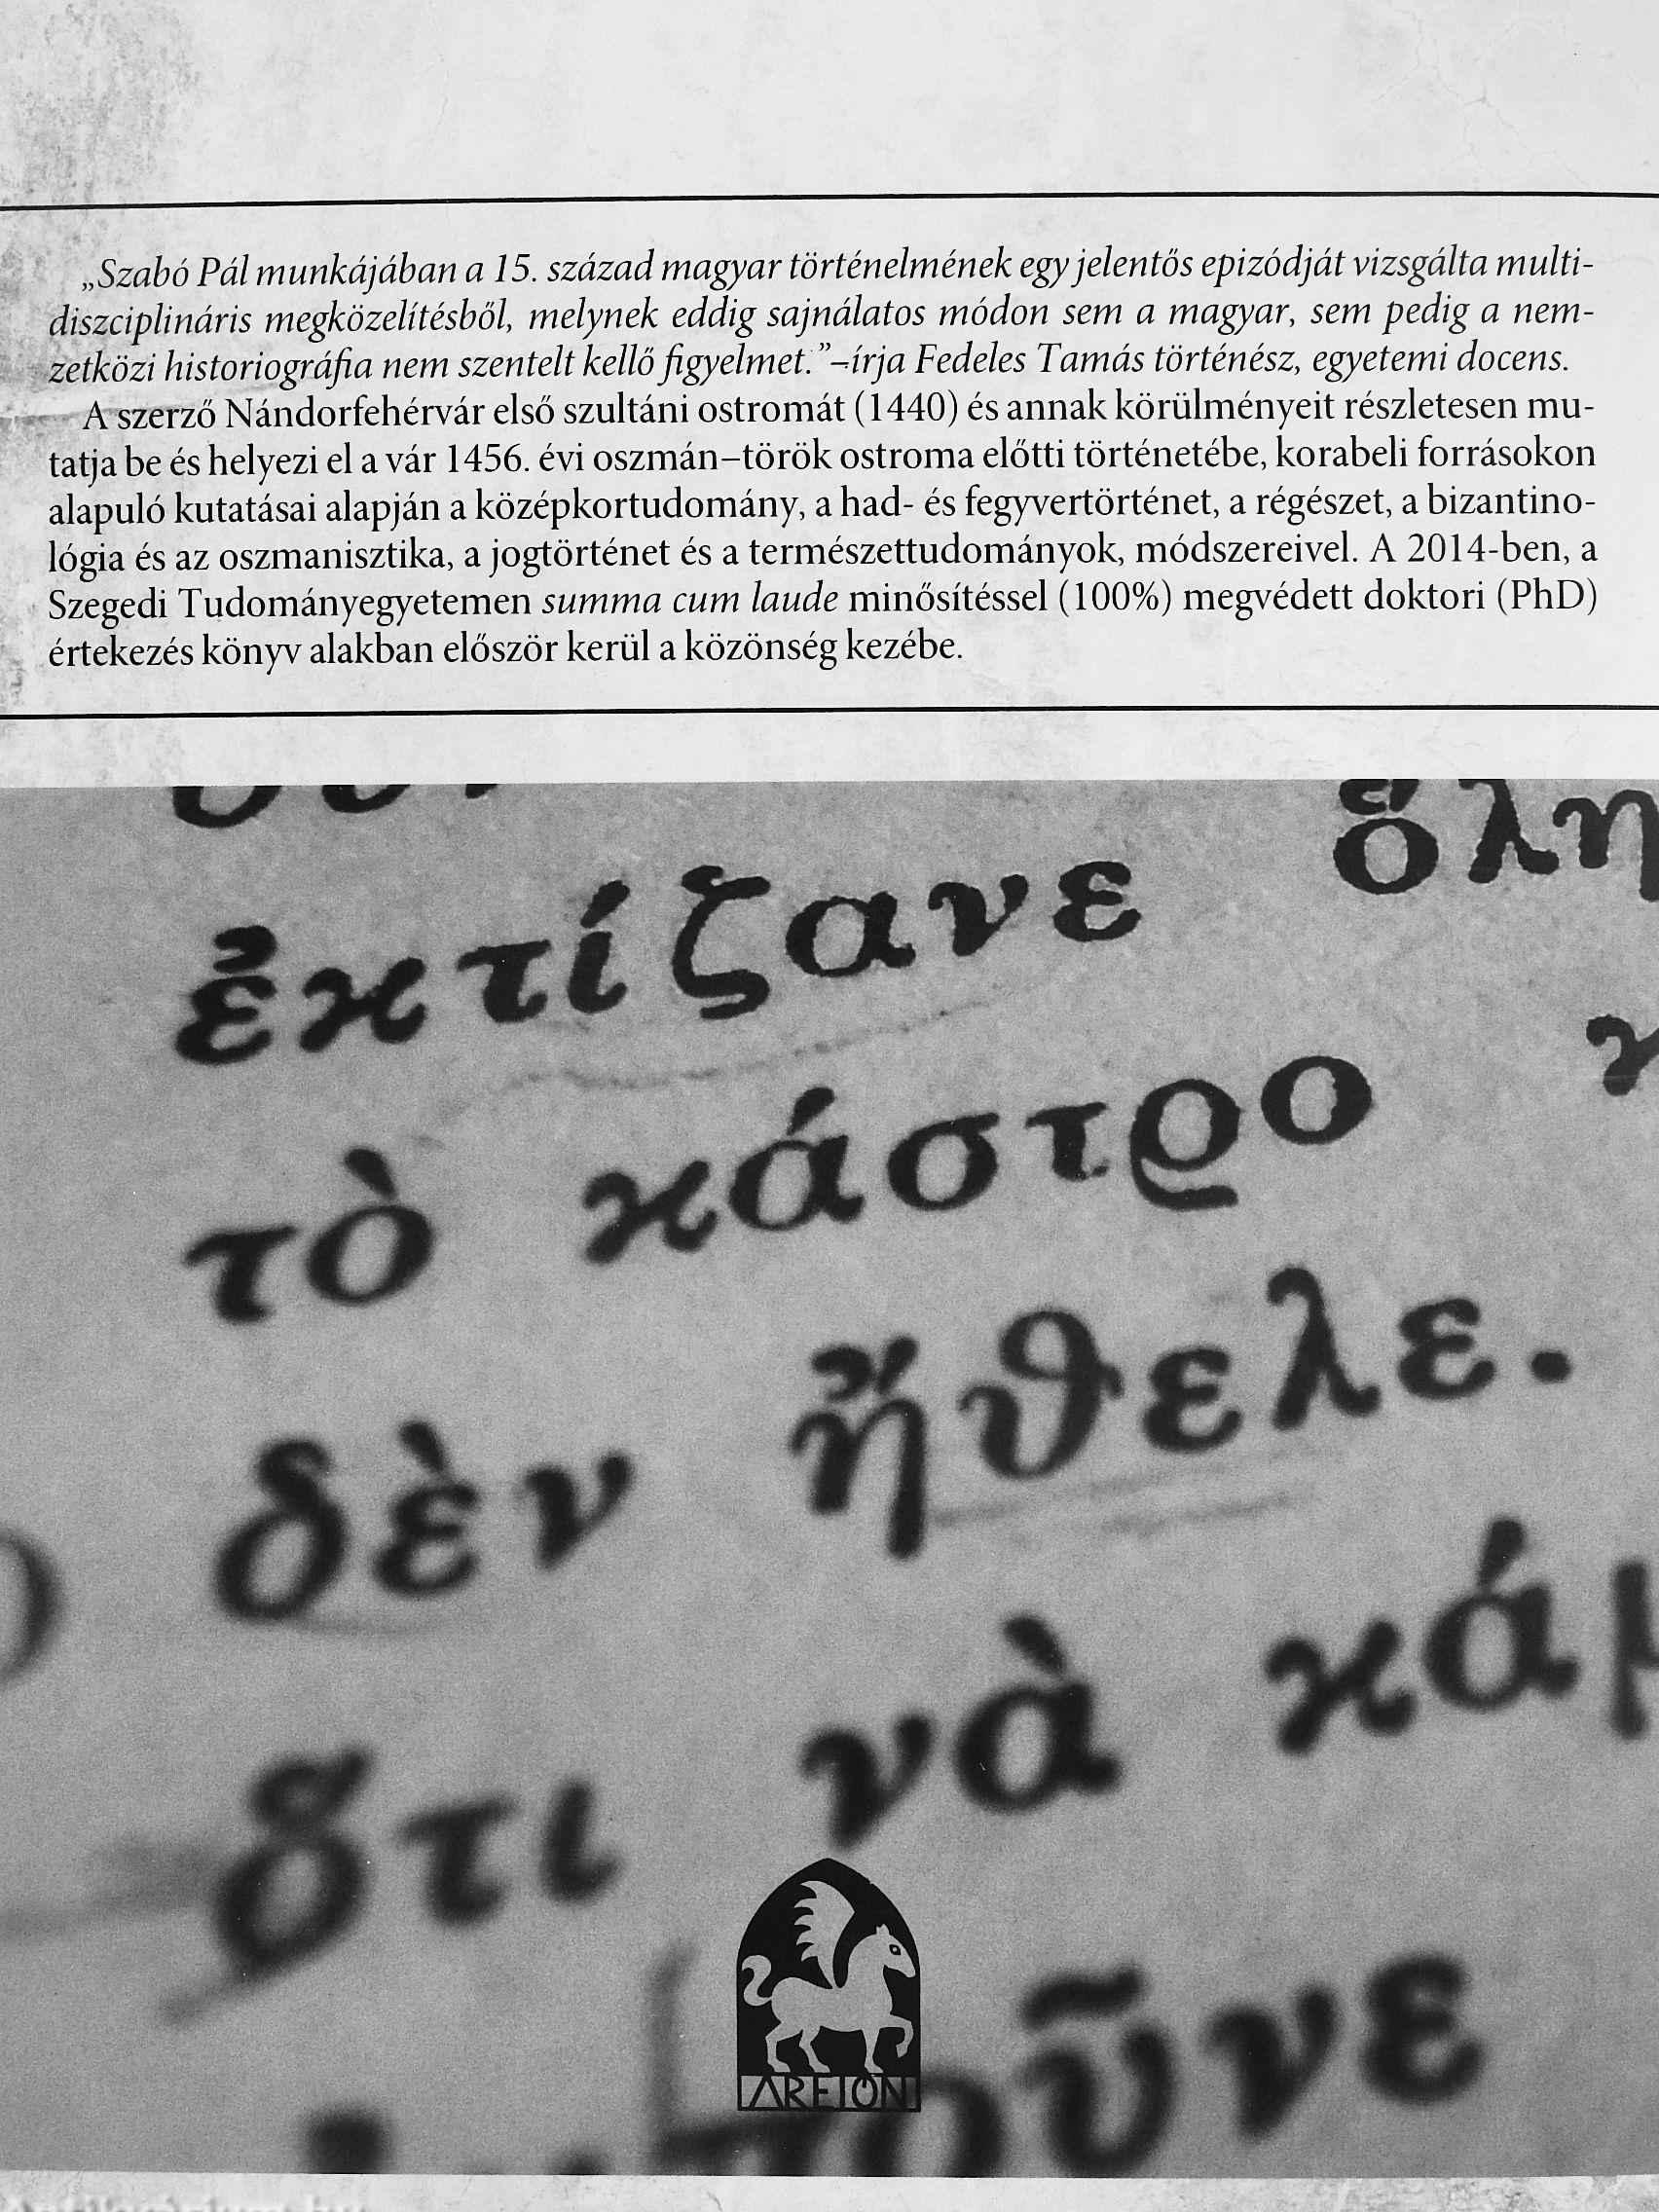 „Szabó Pál munkájában a 15. század magyar történelmének egy jelentős epizódját vizsgálta multi-
diszciplináris megközelítésből, melynek eddig sajnálatos módon sem a magyar, sem pedig a nem-
zetközi historiográfia nem szentelt kellő figyelmet.”–írja Fedeles Tamás történész, egyetemi docens.
A szerző Nándorfehérvár első szultáni ostromát (1440) és annak körülményeit részletesen mu-
tatja be és helyezi el a vár 1456. évi oszmán–török ostroma előtti történetébe, korabeli forrásokon
alapuló kutatásai alapján a középkortudomány, a had- és fegyvertörténet, a régészet, a bizantino-
lógia és az oszmanisztika, a jogtörténet és a természettudományok, módszereivel. A 2014-ben, a
Szegedi Tudományegyetemen summa cum laude minősítéssel (100%) megvédett doktori (PhD)
értekezés könyv alakban először kerül a közönség kezébe.
ἐκτίζανε ὅλη
τὸ κάστρο
δὲν ἤθελε.
ὅτι νὰ κάμ
AREION